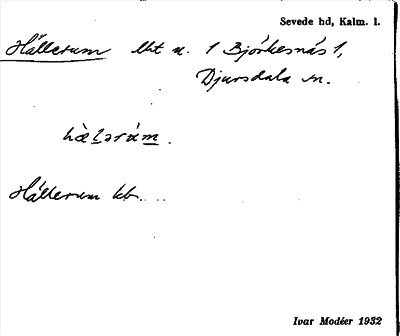 Sevede hd, Kalm. l.
Hällerum lht u. 1 Björkesnäs 1,
Djursdala sn.
hæ̀lərúm.
Hällerum kb.
Ivar Modéer 1932